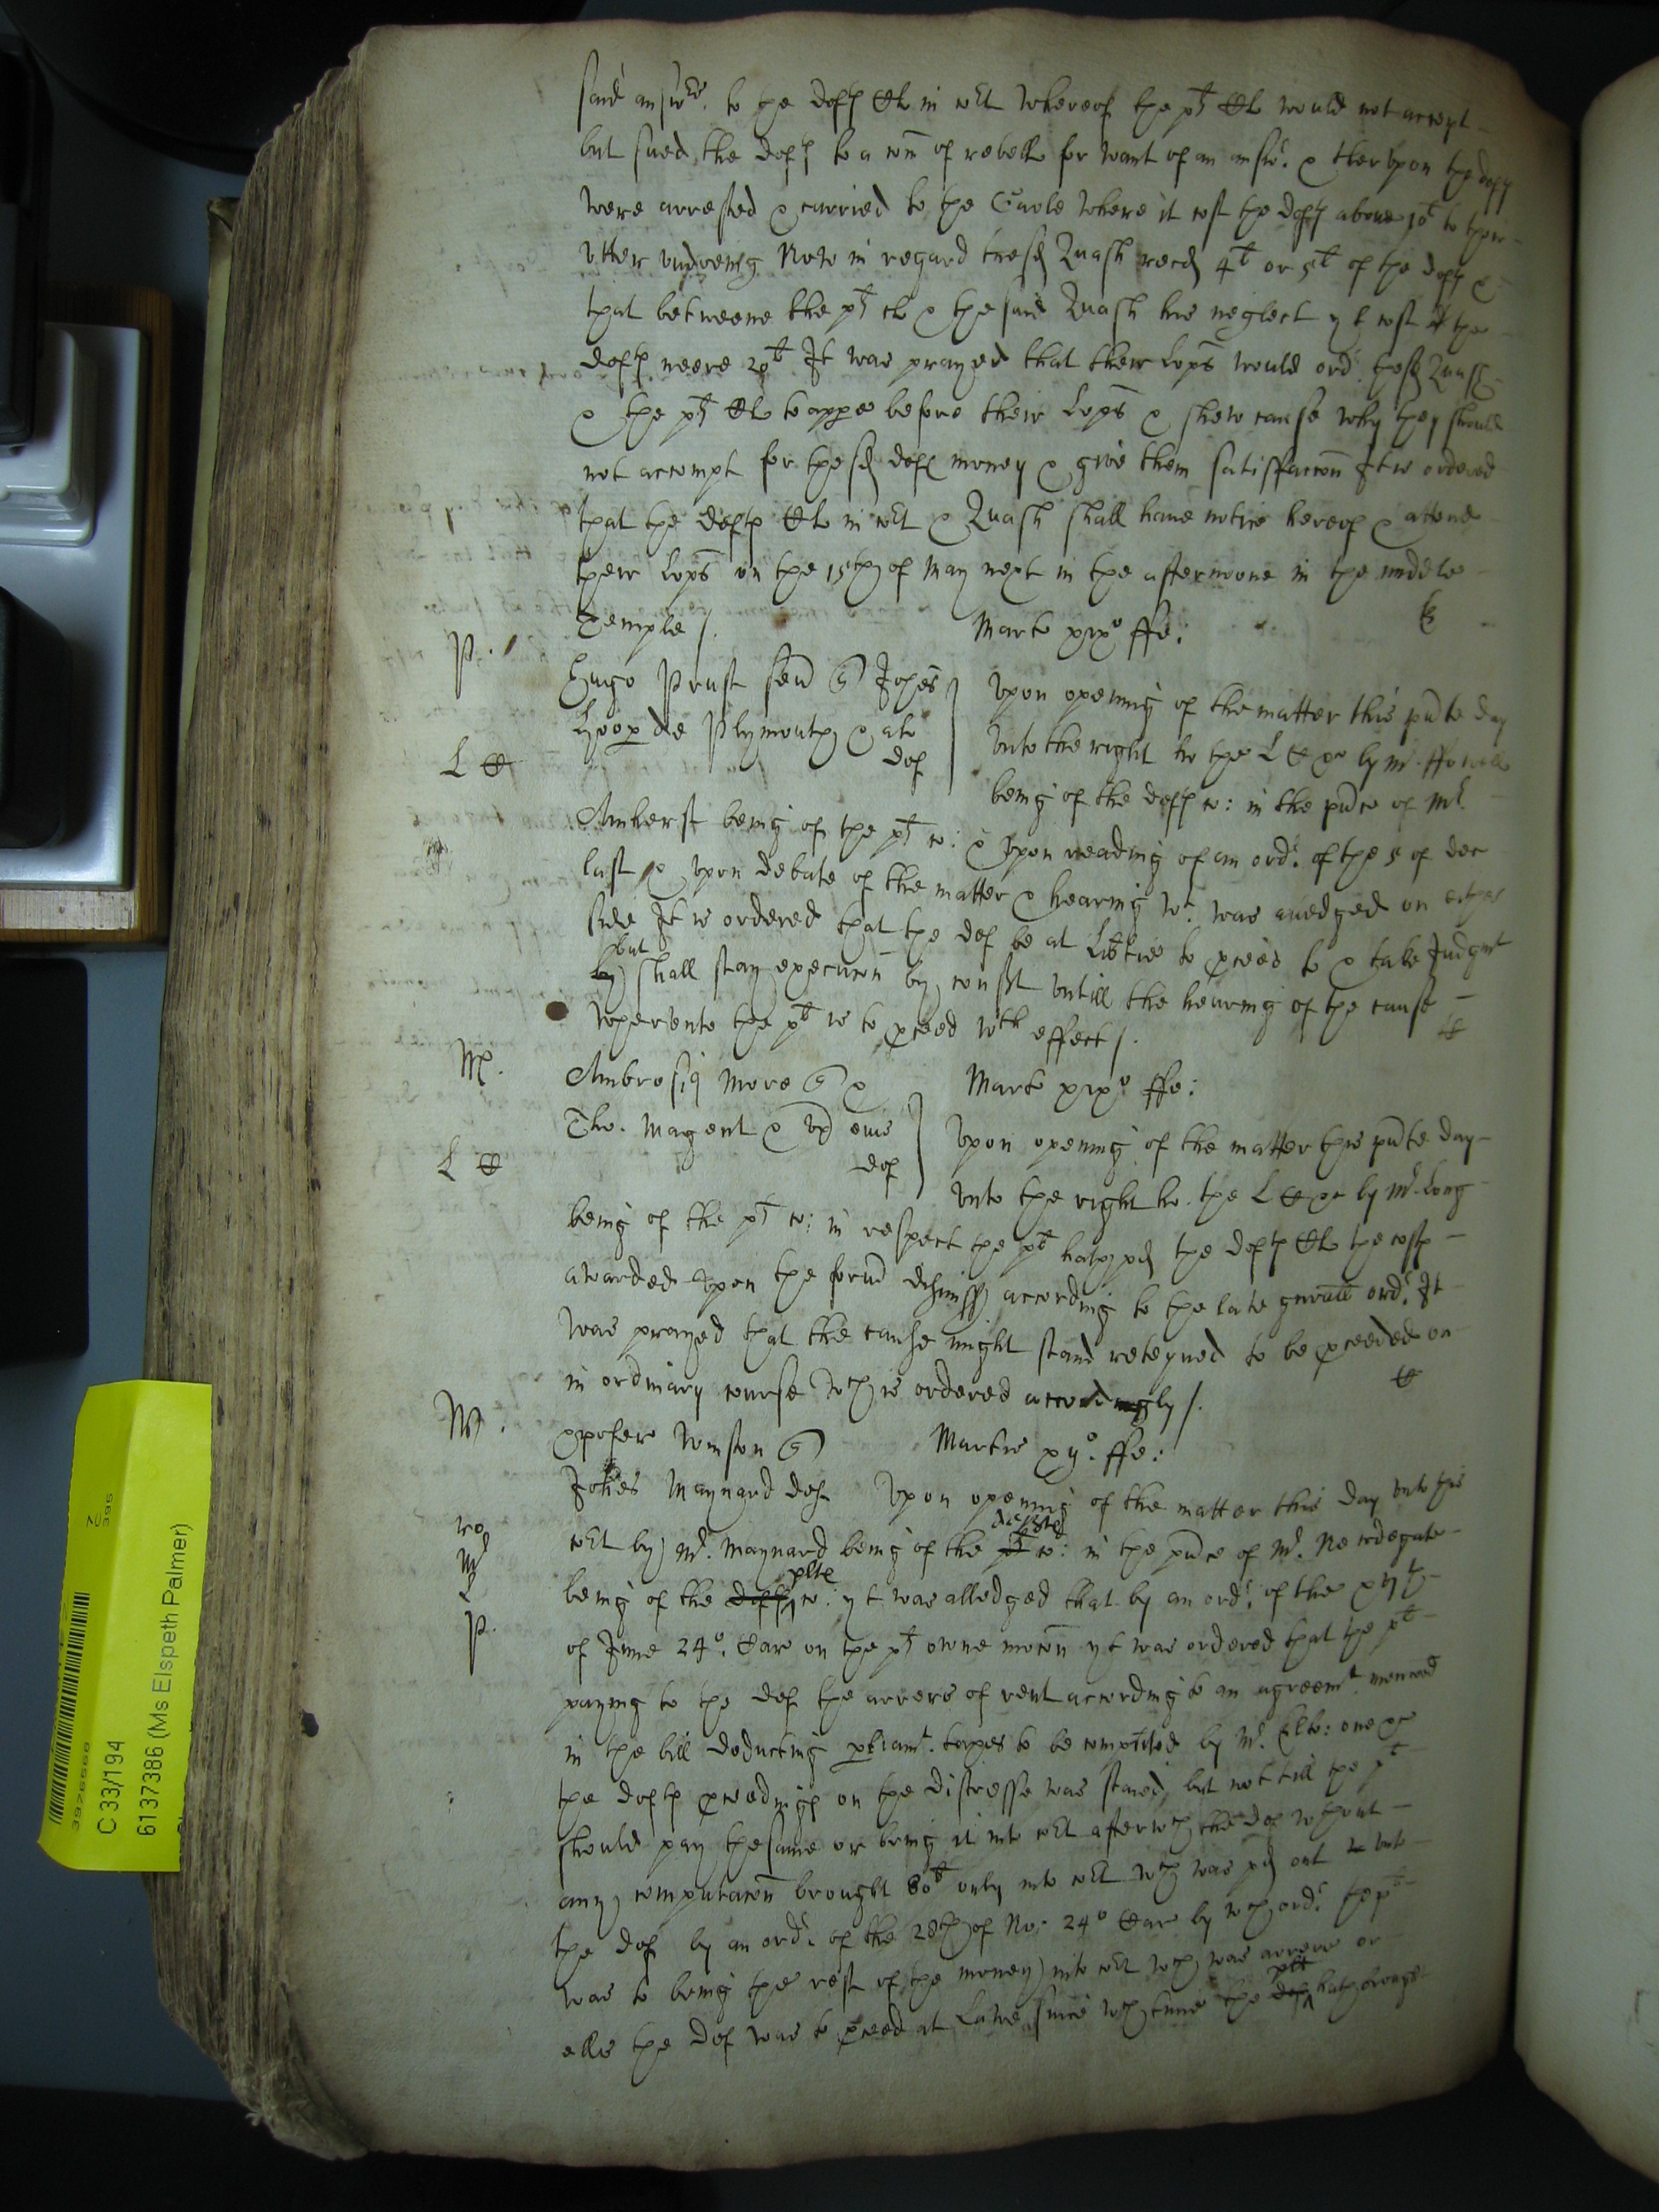 said answ:rs to the defts Cl in Cot whereof the pt Cl would not accept
but sued the defts to a com of rebell for want of an answ:r & therupon the defts
were arrested & carried to the Gaole where it cost the defts above 10l to their
utter undoeing Now in regard the sd Quash recd 4l or 5l of the defts &
that betweene the pt Cl & the said Quash his neglect yt cost the
defts neere 20l It was prayed that their Lops would ord:r the sd Quash
& the pt Cl to appe before their Lops & shew cause why they should
not accompt for the sd defts money & give them satisfaccon It is ordered
that the defts Cl in Cot & Quash shall have notice hereof & attend
their Lops on the 15th of May next in the afternoone in the middle
Temple /.
P.
Marts xixo ffe:
Hugo Prust sen Q Johes
Hooper de Plymouth & als
def
Upon opening of the matter this pnte day
unto the right ho the L C &c by Mr ffowell
L C
being of the defts co: in the pnce of Mr
Amherst being of the pt co: & upon reading of an ord:r of the 5 of dec
last & upon debate of the matter & hearing wt was alledged on either
side It is ordered that the def be at Libtie to pceed to & take Judgmt
but
shall stay execucon by consent untill the hearing of the cause
whereunto the pt is to pceed wth effect /.
M.
Ambrosiq More Q &
Tho. Magent & ux eius
def
Marts xixo ffe:
Upon opening of the matter this pnte day
L C
unto the right ho. the L C &c by Mr Long
being of the pt co: in respect the pt hath pd the defts Cl the costs
awarded upon the form dismiss according to the late gnrall ord:r It
was prayed that the cause might stand reteyned to be pceeded on
in ordinary course wch is ordered accordingly /.
W.
xpofer Winson Q
Martis xijo. ffe:
Johes Maynard deft Upon opening of the matter this day unto this
defts
Cot by Mr. Maynard being of the pt co: in the pnce of Mr. Newdegate
plts
being of the defts co: yt was alledged that by an ord:r of the xijth
P.
of June 24o. Car on the pt owne mocon yt was ordered that the pt
paying to the def the arrers of rent according to an agreemt. menconed
in the bill deducting pliamt. taxes to be computed by Mr. Elts: one &c
the defts pceedings on the distresse was staied, but not till the pt
should pay the same or bring it into Cot after wch the def without
any computacon brought 80l only into Cot wch was pd out unto
the def by an ord:r of the 28th of No: 24o Car by wch ord:r the pt
was to bring the rest of the money into Cot wch was arrere or
plt
ells the def was to pceed at Lawe since wch time the def hath brought
C 33/194
6137386 (Ms Elspeth Palmer)